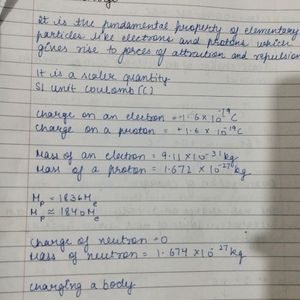 It is the fundamental property of elementary
particles like electrons and protons which
gives rise to forces of attraction and repulsion
It is a scalar quantity
SI unit coulomb (C)
charge on an electron = -1.6 x 10⁻¹⁹ C
charge on a proton = +1.6 x 10⁻¹⁹ C
Mass of an electron = 9.11 x 10⁻³¹ kg
Mass of a proton = 1.672 x 10⁻²⁷ kg
Mp = 1836 Me
Mp ≈ 1840 Me
charge of neutron = 0
Mass of neutron = 1.674 x 10⁻²⁷ kg
charging a body